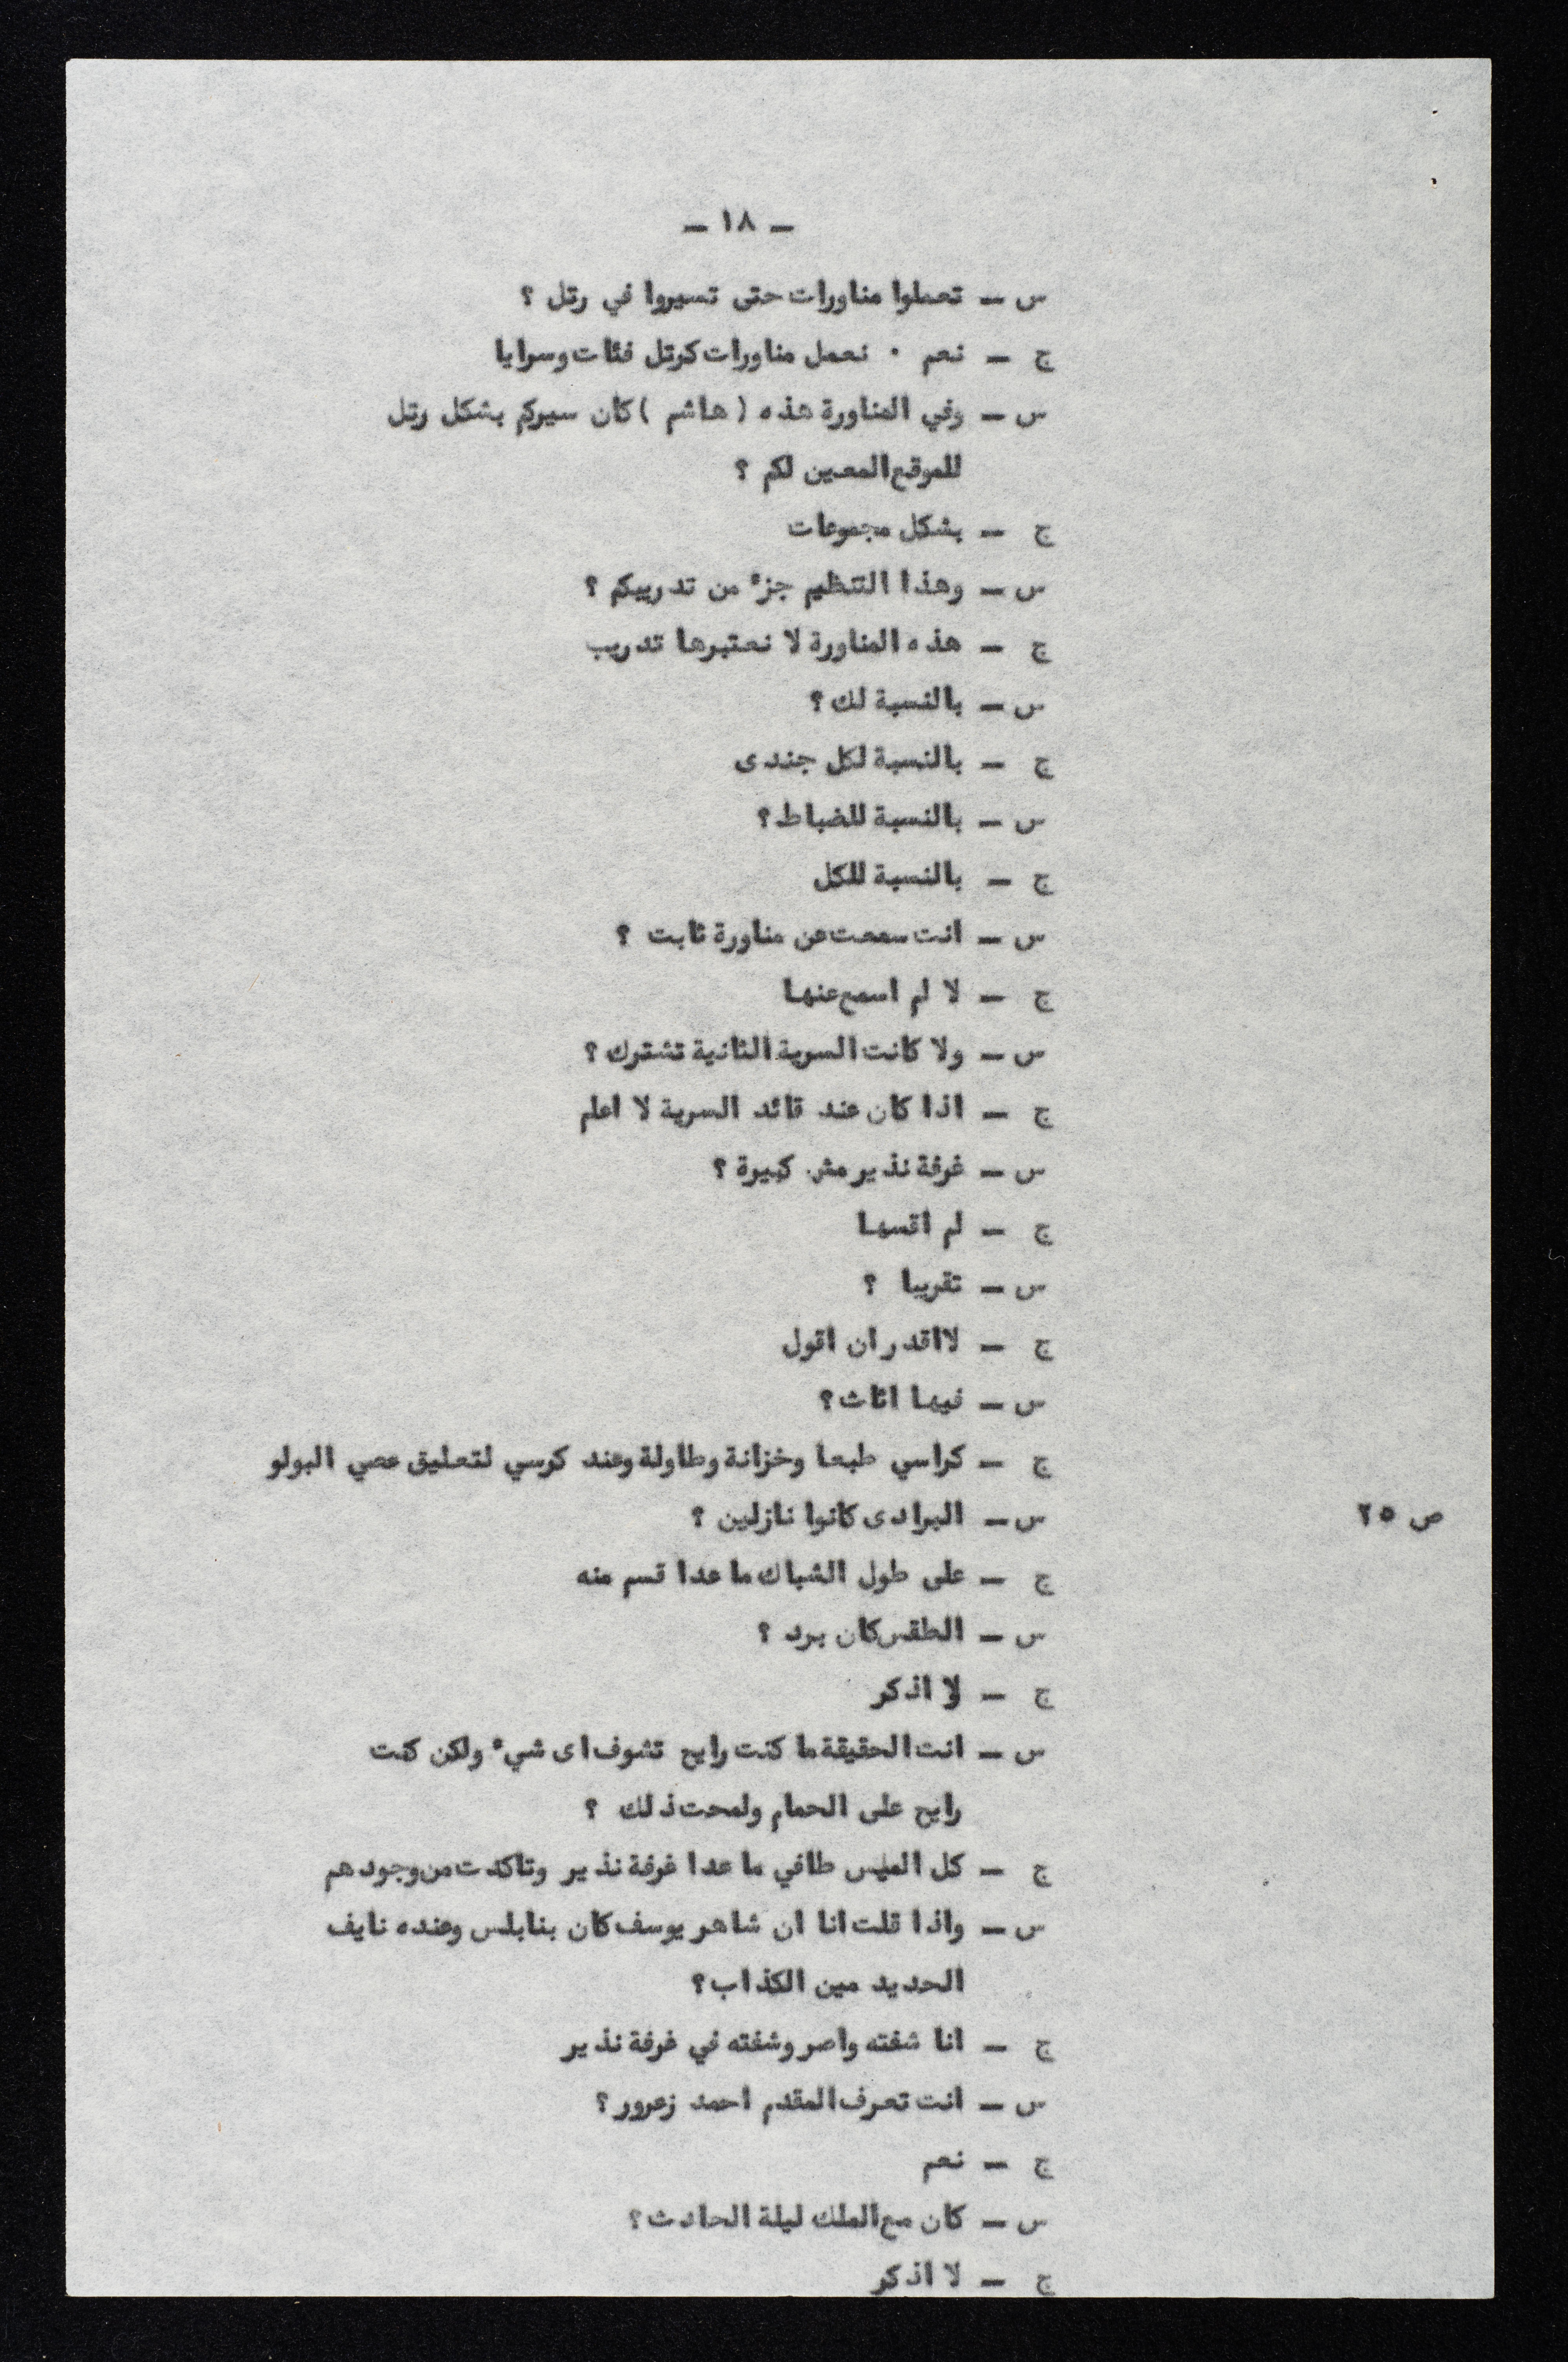 ـ ١٨ ـ
س ـ تعملوا مناورات حتى تسيروا في رتل ؟
ج ـ نعم ٠ نعمل مناورات كرتل فئات وسرايا
س ـ وفي المناورة هذه ( هاشم ) كان سيركم بشكل رتل
للموقع المعين لكم ؟
ج ـ بشكل مجموعات
س ـ وهذا التنظيم جزء من تدريبكم ؟
ج ـ هذه المناورة لا نعتبرها تدريب
س ـ بالنسبة لك ؟
ج ـ بالنسبة لكل جندى
س ـ بالنسبة للضباط ؟
ج ـ بالنسبة للكل
س ـ انت سمعت عن مناورة ثابت ؟
ج ـ لا لم اسمع عنها
س ـ ولا كانت السرية الثانية تشترك ؟
ج ـ اذا كان عند قائد السرية لا اعلم
س ـ غرفة نذير مش كبيرة ؟
ج ـ لم اقسها
س ـ تقريبا ؟
ج ـ لا اقدر ان اقول
س ـ فيها اثاث ؟
ج ـ كراسي طبعا وخزانة وطاولة وعند كرسي لتعليق عصي البولو
ص ٢٥ س ـ البرادى كانوا نازلين ؟
ج ـ على طول الشباك ما عدا قسم منه
س ـ الطقس كان برد ؟
ج ـ لا اذكر
س ـ انت الحقيقة ما كنت رايح تشوف اى شيء ولكن كنت
رايح على الحمام ولمحت ذلك ؟
ج ـ كل الميس طافي ما عدا غرفة نذير وتاكدت من وجودهم
س ـ واذا قلت انا ان شاهر يوسف كان بنابلس وعنده نايف
الحديد مين الكذاب ؟
ج ـ انا شفته واصر وشفته في غرفة نذير
س ـ انت تعرف المقدم احمد زعرور ؟
ج ـ نعم
س ـ كان مع الملك ليلة الحادث ؟
ج ـ لا اذكر